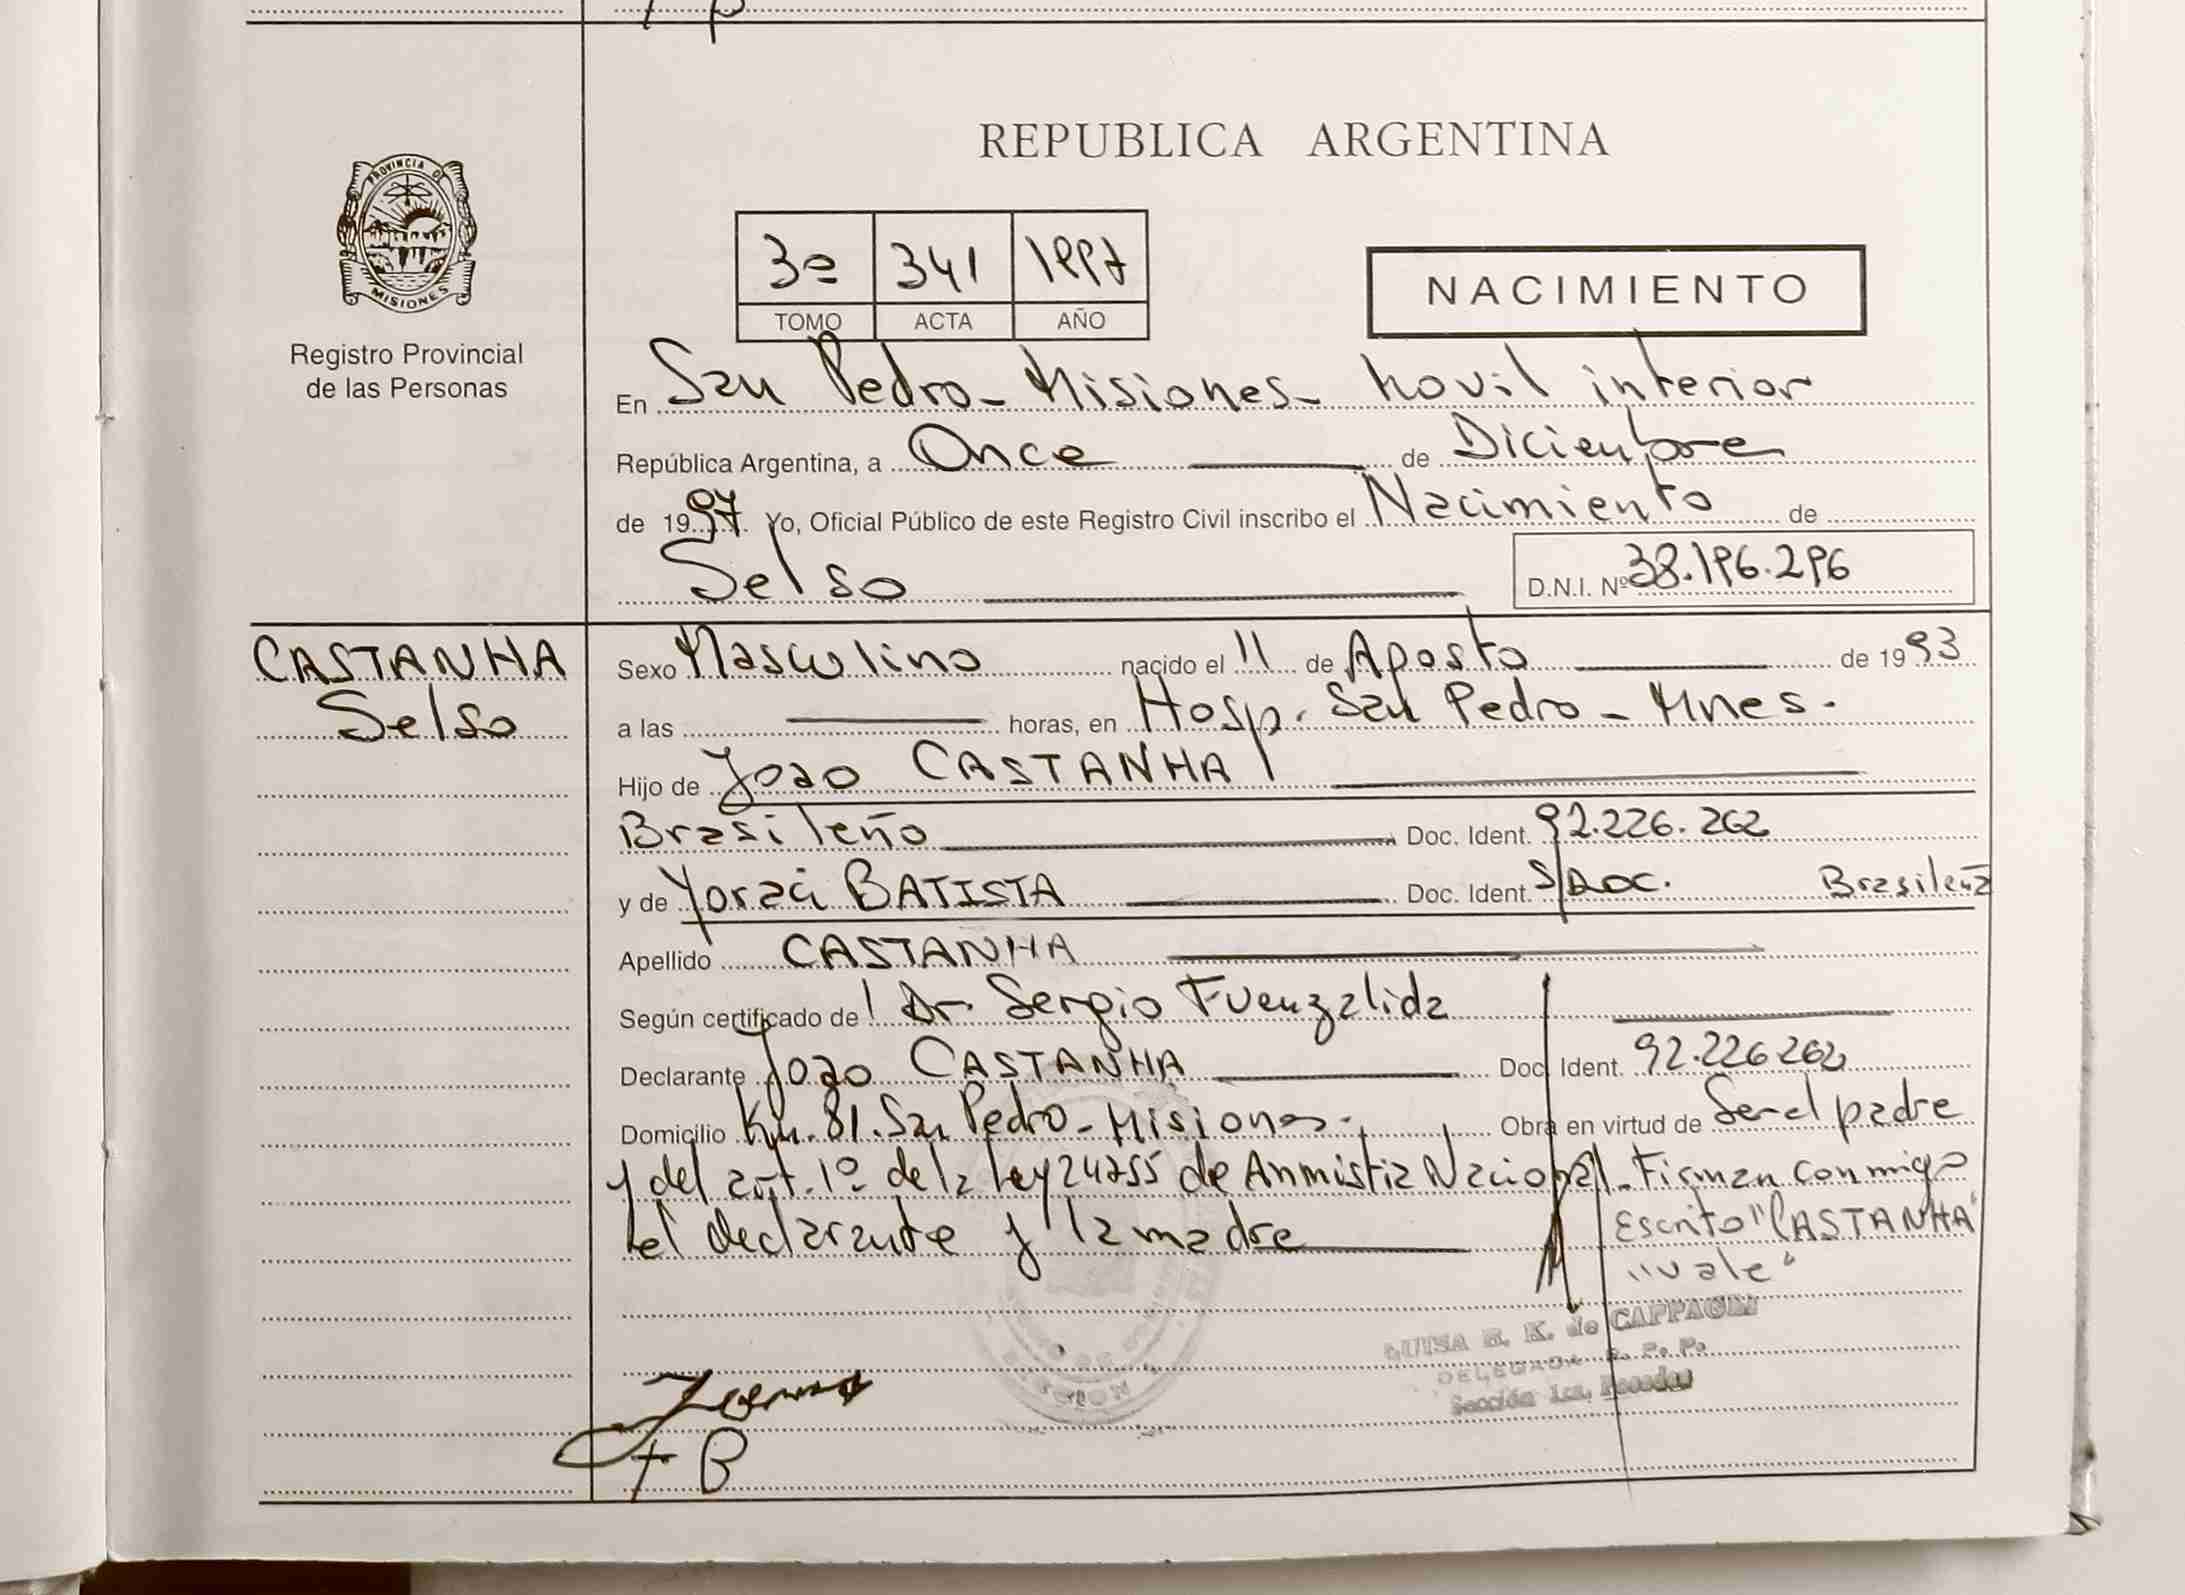 REPUBLICA ARGENTINA
PROVINCIA DE
MISIONES
Registro Provincial
de las Personas
3º 341 1997
TOMO ACTA AÑO
NACIMIENTO
En San Pedro - Misiones - Movil interior
República Argentina, a Once de Diciembre
de 1997. Yo, Oficial Público de este Registro Civil inscribo el Nacimiento de
Selso D.N.I. Nº 38.196.296
CASTANHA
Selso
Sexo Masculino nacido el 11 de Agosto de 1993
a las horas, en Hosp. San Pedro - Mnes.
Hijo de Joao CASTANHA
Brasileño Doc. Ident. 92.226.262
y de Yoraci BATISTA Doc. Ident. S/DOC. Brasileña
Apellido CASTANHA
Según certificado de Dr. Sergio Fuenzalida
Declarante Joao CASTANHA Doc. Ident. 92.226.262
Domicilio Km. 81. San Pedro - Misiones. Obra en virtud de Ser el padre
y del art. 1º de la Ley 24755 de Anmistia Nacional. Firman conmigo
el declarante y la madre
Escrito "CASTANHA"
"vale"
LUISA R. K. de
DELEGADA R. P. P.
Sección 1ra. Posadas